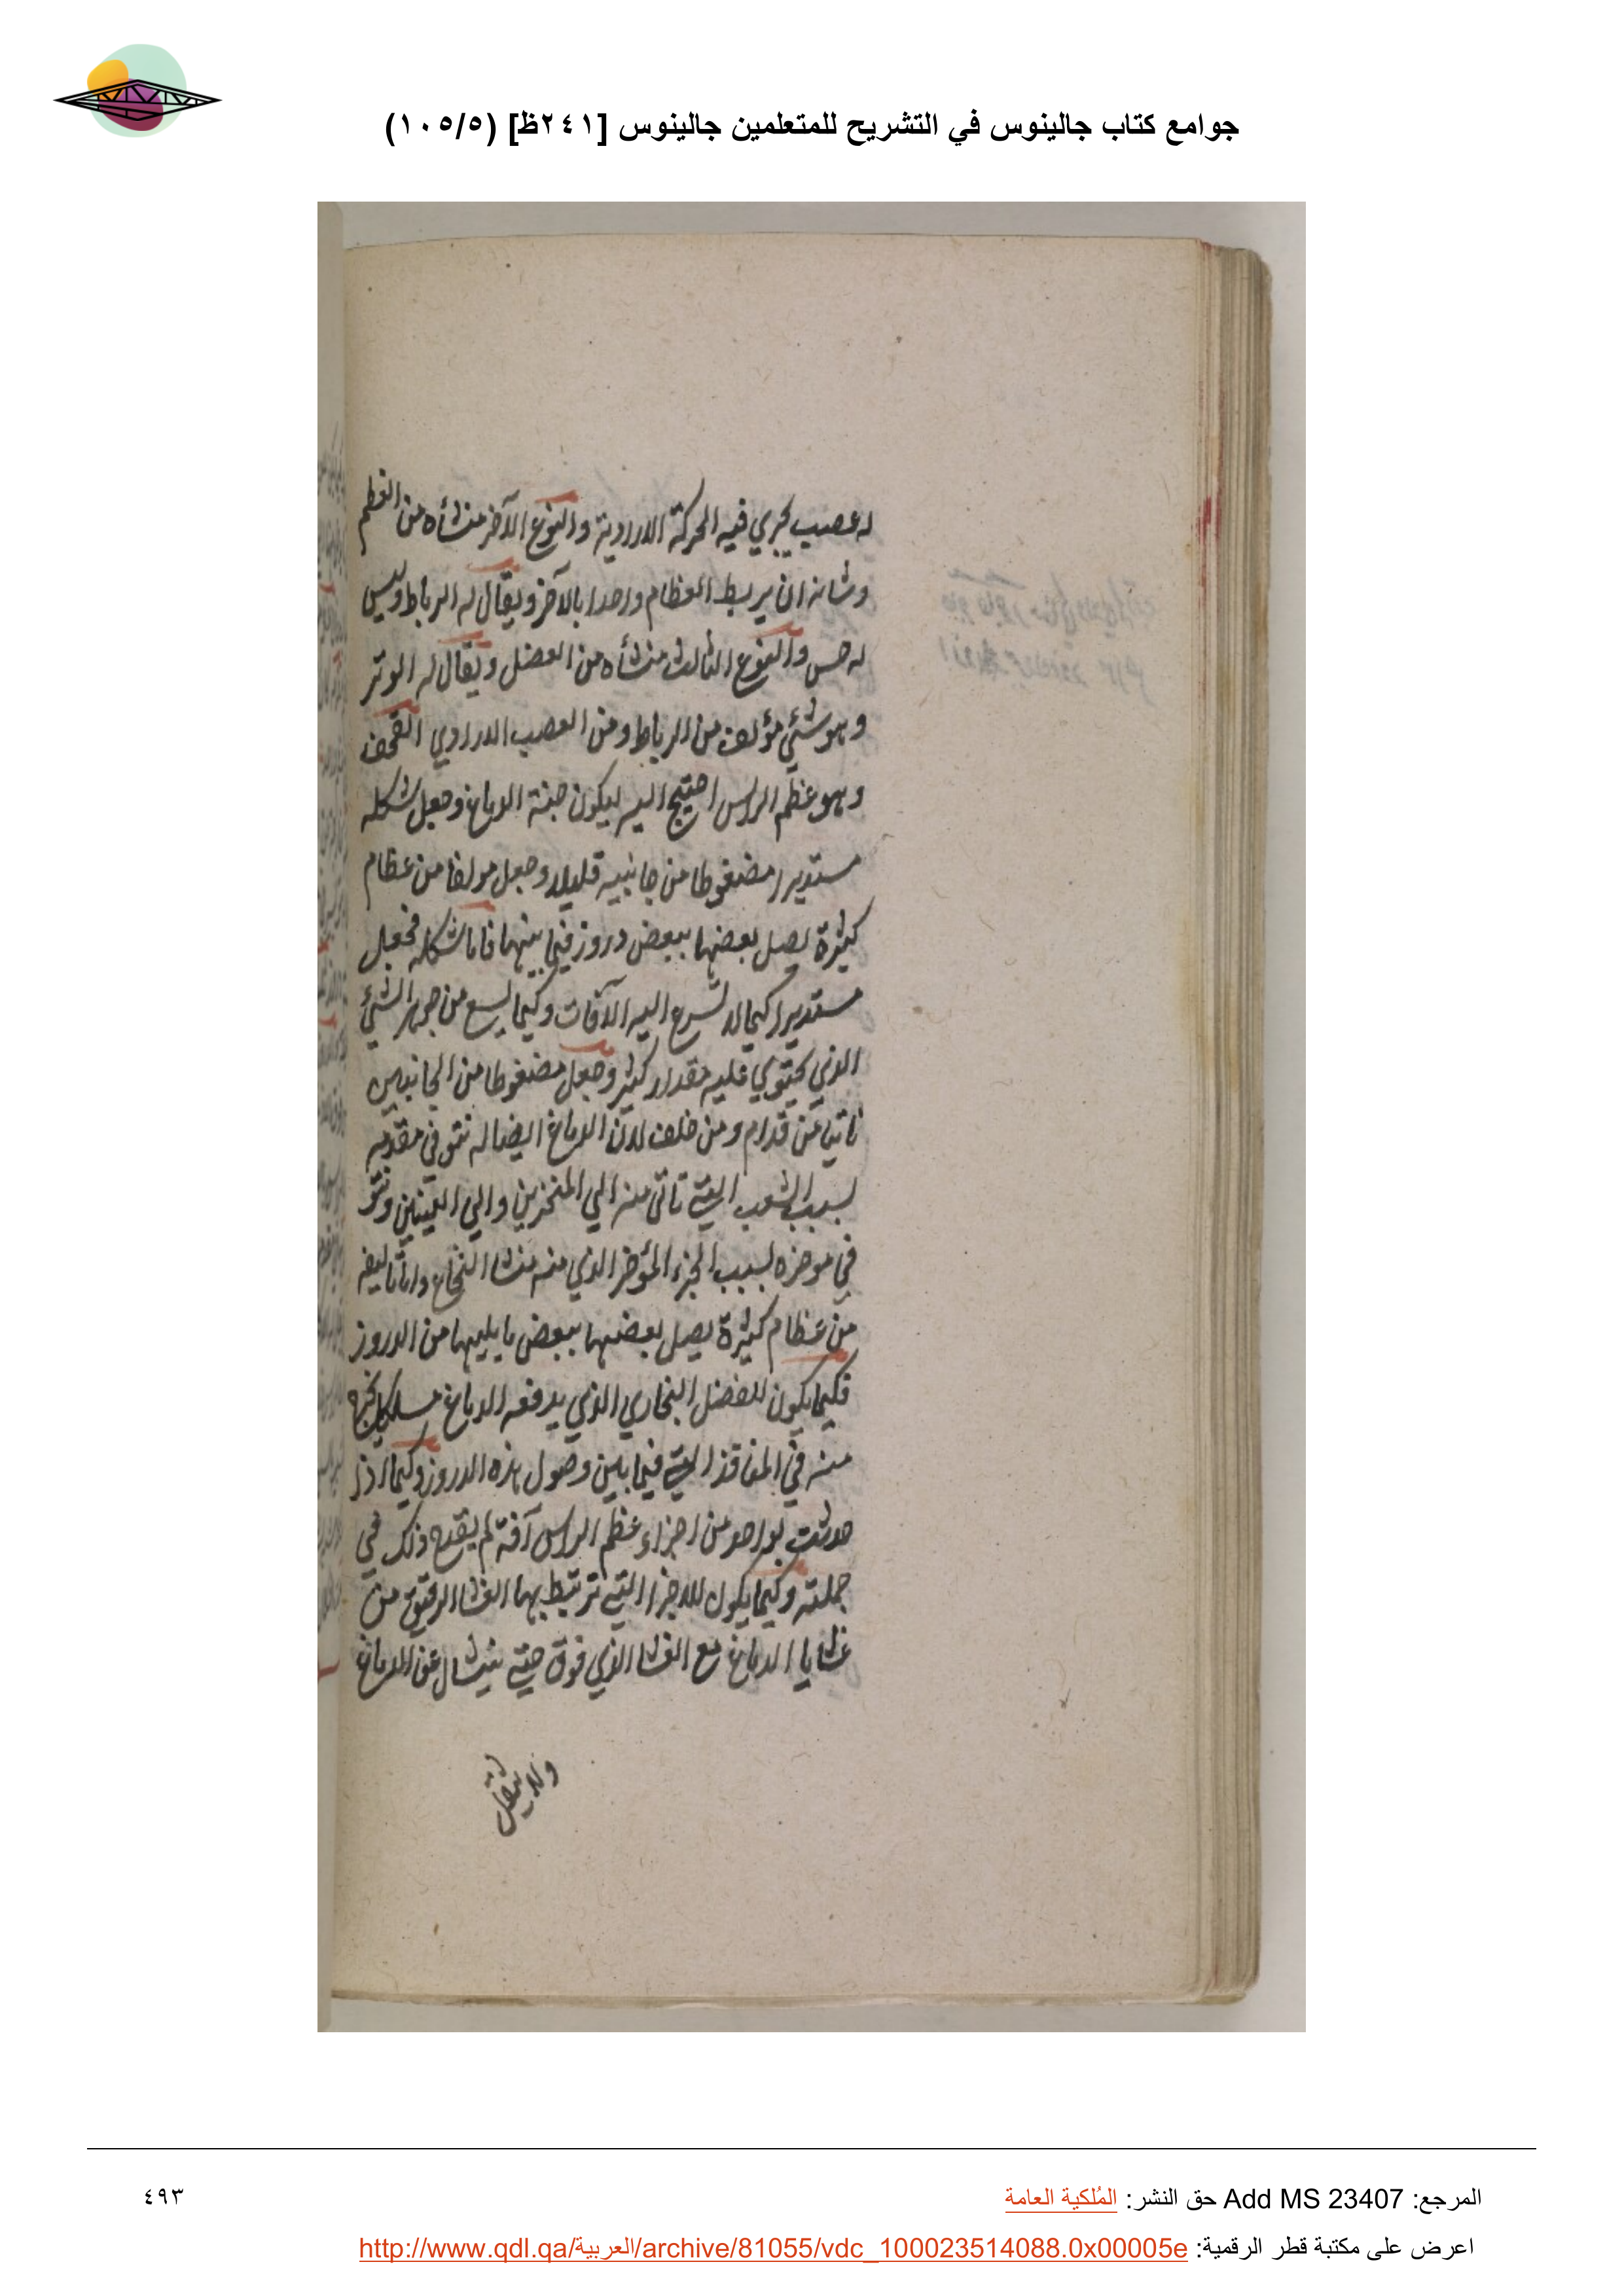 جوامع كتاب جالينوس في التشريح للمتعلمين جالينوس [٢٤١ظ] (١٠٥/٥)
له عصب يجري فيه الحركة الارادية والنوع الآخر منشأه من العظم
وشانه ان يربط العظام واحدا بالآخر ويقال له الرباط وليس
له حس والنوع الثالث منشأه من العضل ويقال له الوتر
وهو شئي مؤلف من الرباط ومن العصب الارادي القحف
وهو عظم الراس احتيج اليه ليكون جنة الدماغ وجعل شكله
مستديرا مضغوطا من جانبيه قليلا وجعل مولفا من عظام
كثيرة يصل بعضها ببعض دروز فيما بينهما فاما شكله فجعل
مستديرا كيما لا تسرع اليه الآفات وكيما يسع من جوهر الشئ
الذي يحتوي عليه مقدار كثير وجعل مضغوطا من الجانبين
ناتيا من قدام ومن خلف لان الدماغ ايضا له نتو في مقدمه
لسبب الشعب التي تاتى منه الي المنخرين والي العينين ونتو
في موخره لسبب الجزء المؤخر الذي منه منشا النخاع واما تاليفه
من عظام كثيرة يصل بعضها ببعض ما يليها من الدروز
فكيما يكون للفضل البخاري الذي يدفعه الدماغ مسلكا يخرج
منه في المنافذ التي فيما بين وصول هذه الدروز وكيما اذا
حدثت بواحد من اجزاء عظم الراس آفة لم يقدح ذلك في
جملته وكيما يكون للاجزا التي ترتبط بها الغشا الرقيق من
غشايا الدماغ مع الغشا الذي فوق حتي ينشال عن الدماغ
ولا يثقل
المرجع: Add MS 23407 حق النشر: المُلكية العامة
٤٩٣
اعرض على مكتبة قطر الرقمية: http://www.qdl.qa/العربية/archive/81055/vdc_100023514088.0x00005e